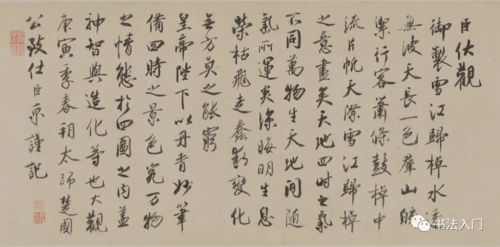 臣伏觀
御製雪江歸棹水遠
無波天長一色群山皎
潔行客蕭條鼓棹中
流片帆天際雪江歸棹
之意盡矣天地四時之氣
不同萬物生天地間隨
氣所運炎涼晦明生息
榮枯飛走蠢動變化
無方莫之能窮
皇帝陛下以丹青妙筆
備四時之景色究萬物
之情態於四圖之內蓋
神智與造化等也大觀
庚寅季春朔太師楚國
公致仕臣京謹記
书法入门